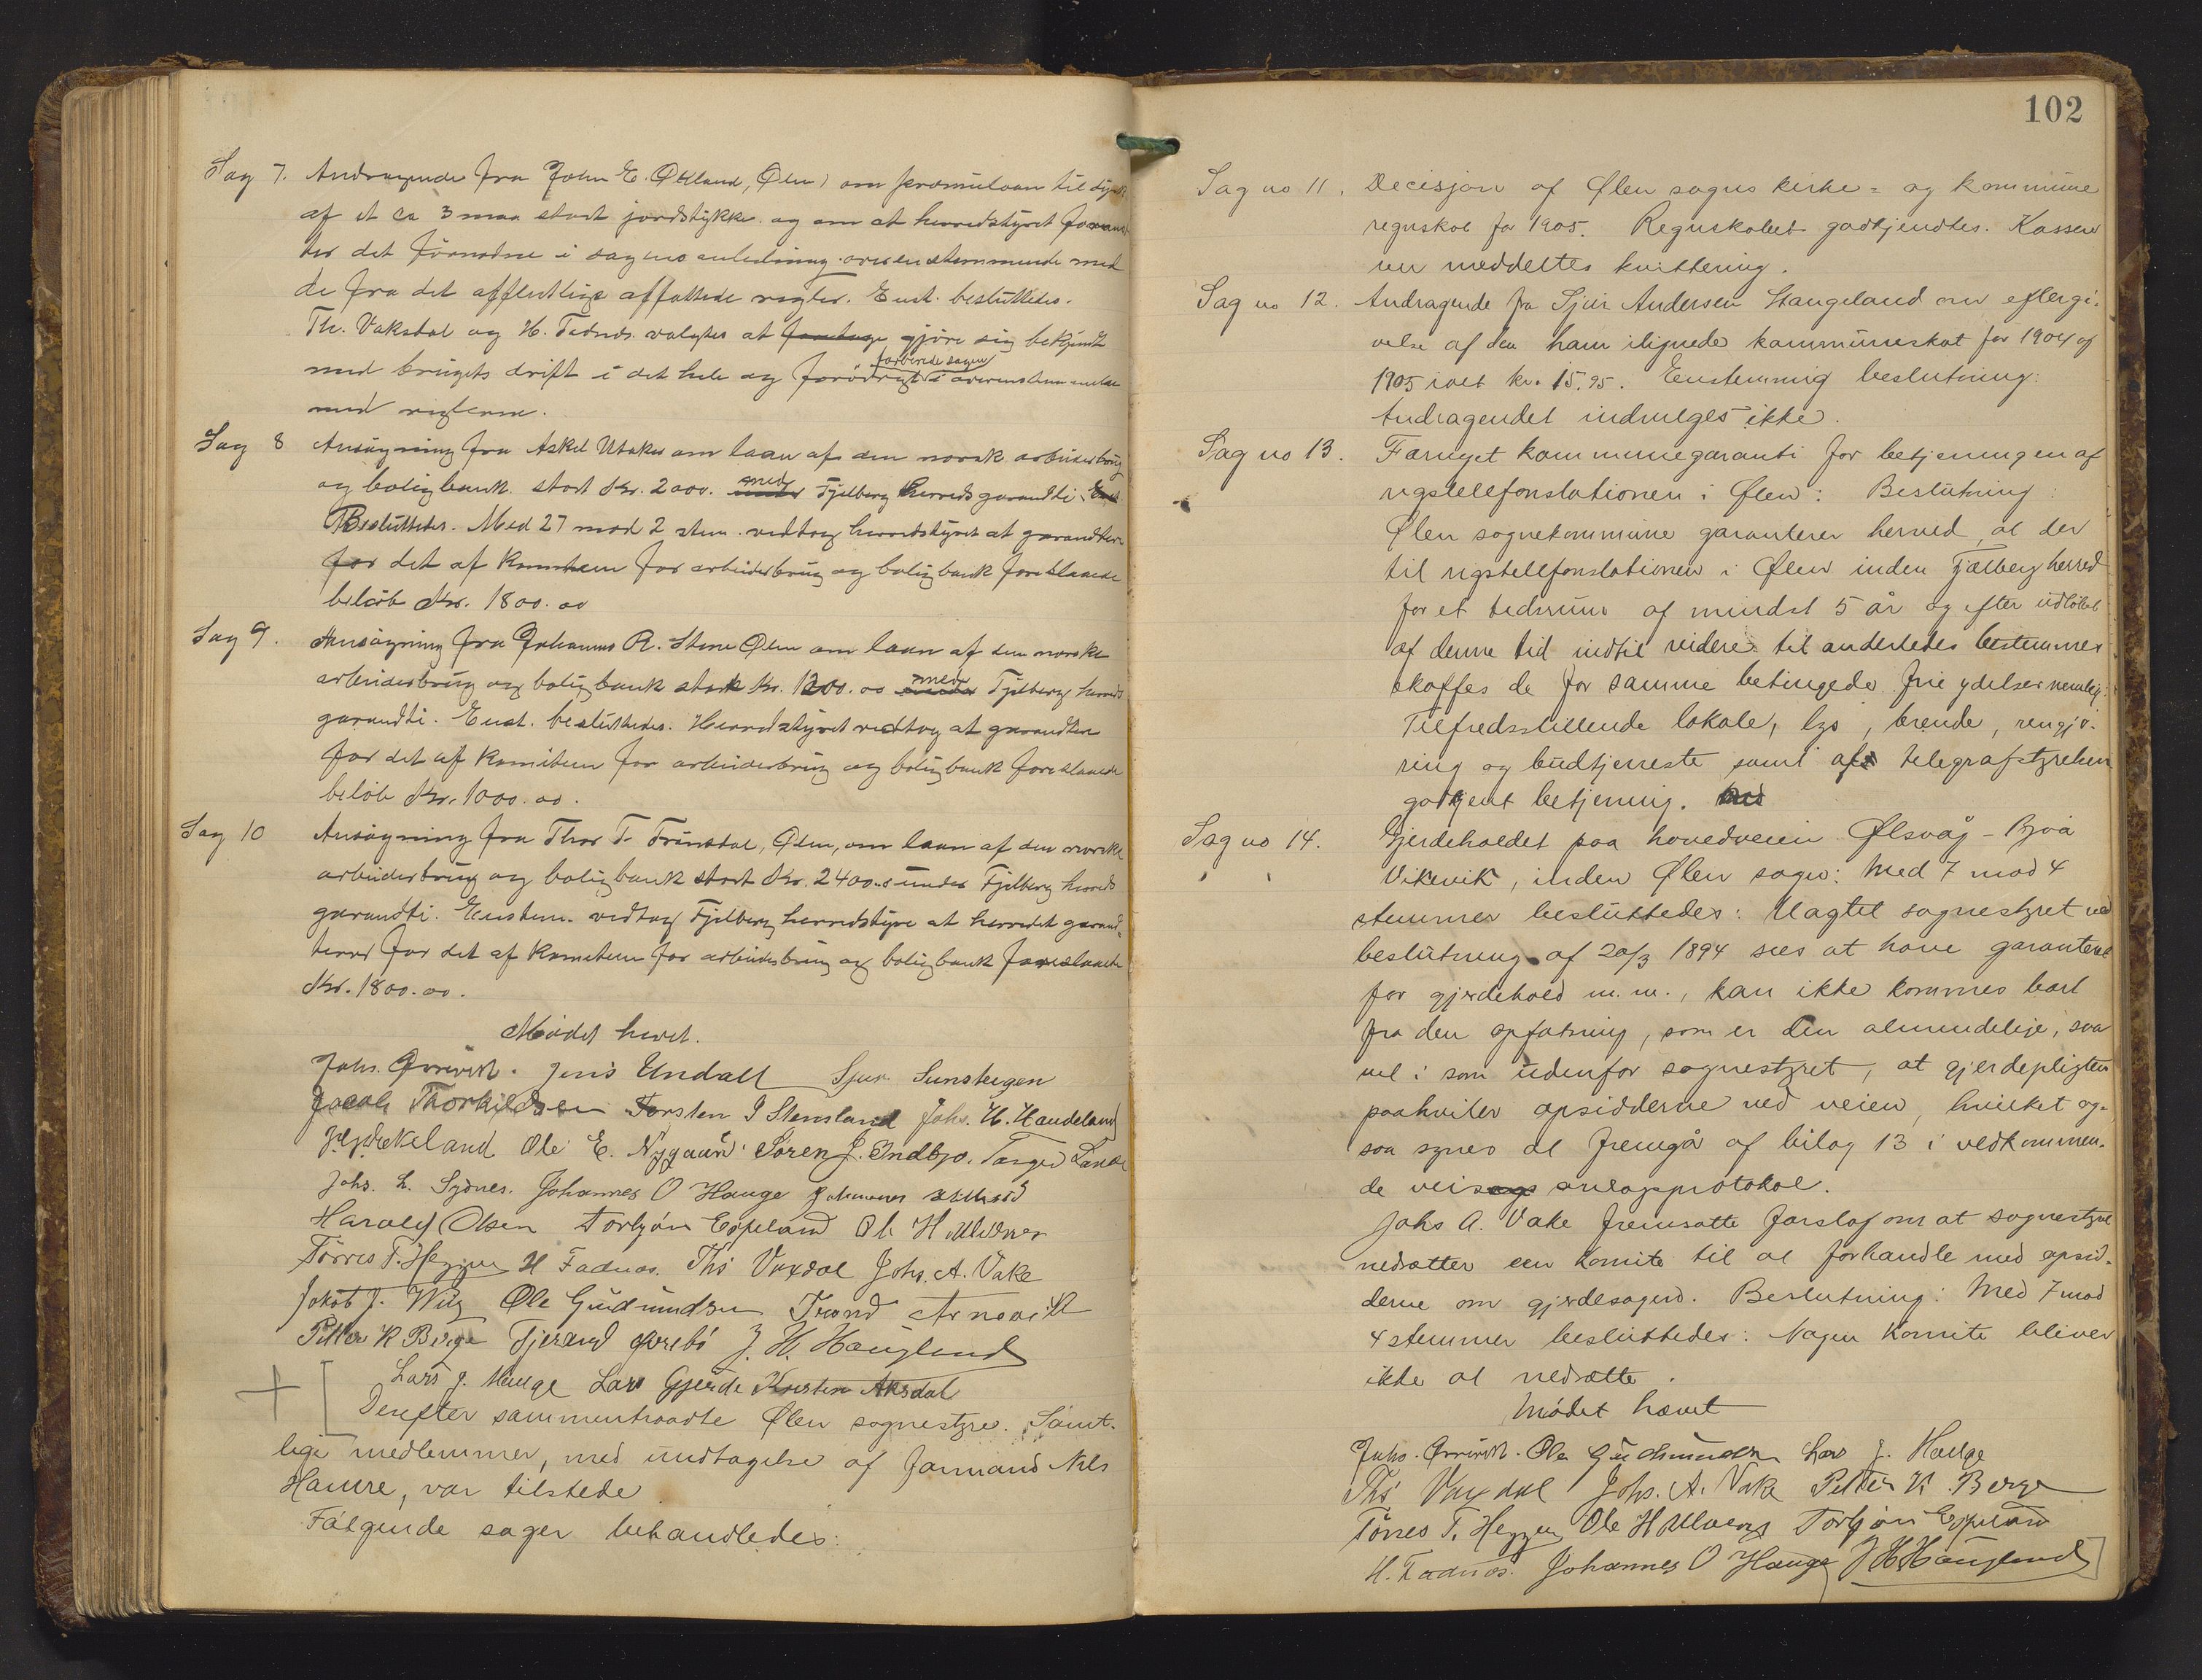 Sag 7. Andragende fra John E. Økland, Ølen, om præmielaan til dyrk.
af et ca 3 maa stort jordstykke og om at herredstyret foran
ter det fornødne i sagens anledning overensstemmende med
de fra det offentlige affattede regler. Enst. besluttedes.
Th. Vaksdal og H. Fadnæs valgtes at foretage gjøre sig bekjendt
med brugets drift i det hele og forøvrigt forberede sagen i overensstemmelse
med reglerne.
Sag 8 Ansøgning fra Askel Utaker om laan af den norsk arbeiderbrug
og boligbank stort Kr. 2000. med Fjelberg herreds garandti.
Besluttedes. Med 27 mod 2 stem. vedtog herredstyret at garandtere
for det af Komiteen for arbeiderbrug og boligbank foreslaaede
beløb Kr. 1800.00
Sag 9. Ansøgning fra Johannes R. Stene Ølen om laan af den norske
arbeiderbrug og boligbank stort Kr. 1200.00 med Fjelberg herreds
garandti. Enst. besluttedes. Herredstyret vedtog at garandtere
for det af Komiteen for arbeiderbrug og boligbank foreslaaede
beløb Kr. 1000.00.
Sag 10 Ansøgning fra Thor T. Frünstal, Ølen, om laan af den norske
arbeiderbrug og boligbank stort Kr. 2400.- under Fjelberg herreds
garandti. Enstem. vedtog Fjelberg herredstyre at herredet garand-
terer for det af Komiteen for arbeiderbrug og boligbank foreslaaede
Kr. 1800.00.
Mødet hævet.
Johs. Qvrivik. Jens Undall Sjur Sunsteigen
Jacob Thorkildsen Torsten J Stensland Johs. H. Handeland
Ole E. Nygaard Søren J. Indbjo. Torger Lande
Johs. L. Sydnes. Johannes O Hauge Johannes
Harald Olsen Torbjøn Espeland Ole H Ulvenes
Tørres T. Heggen H Fadnæs. Ths Vaxdal Johs. A. Vake
Jokob J. Wiig Ole Gudmundsen Trond Arnevik
Petter K Berge Tjerand Øvrebø J. H. Hauglund
Lars J. Hauge Lars Gjerde Kristen Aksdal
Derefter sammentraadte Ølen sognestyre. Samt-
lige medlemmer, med undtagelse af formand Nils
Hamre, var tilstede
Følgende sager behandledes:
102
Sag no 11. Decisjon af Ølen sogns kirke- og kommune
regnskab for 1905. Regnskabet godkjendtes. Kassere
ren meddeltes kvittering.
Sag no 12. Andragende fra Sjur Andersen Stangeland om eftergi-
velse af den ham ilignede kommuneskat for 1904 og
1905 ialt kr. 15.95. Enstemmig beslutning:
Andragendet indvilges ikke.
Sag no 13. Fornyet kommunegaranti for betjeningen af
rigstelefonstationen i Ølen: Beslutning:
Ølen sognekommune garanterer herved, at der
til rigstelefonstationen i Ølen inden Fjælberg herred
for et tidsrum af mindst 5 år og efter udløbet
af denne tid indtil videre til anderledes bestemmes
skaffes de for samme betingede frie ydelser nemlig:
Tilfredsstillende lokale, lys, brende, rengjø-
ring og budtjeneste samt af telegrafstyrelsen
godkjent betjening.
Sag no 14. Gjerdeholdet paa hovedveien Ølsvåg - Bjoa
Vikevik, inden Ølen sogn: Med 7 mod 4
stemmer besluttedes: Uagtet sognestyret ved
beslutning af 20/3 1894 sees at have garanteret
for gjerdehold m.m., kan ikke kommes bort
fra den opfatning, som er den almindelige, saa
vel i som udenfor sognestyret, at gjerdepligten
paahviler opsidderne ved veien, hvilket og-
saa synes at fremgå af bilag 13 i vedkommen-
de veisags anlagsprotokol.
Johs A. Vake fremsatte forslag om at sognestyret
nedsætter een komite til at forhandle med opsid-
derne om gjerdesagen. Beslutning: Med 7 mod
4 stemmer besluttedes: Nogen Komite bliver
ikke at nedsætte.
Mødet hævet
Johs. Qvrivik. Ole Gudmundsen Lars J. Hauge
Ths Vaxdal Johs. A. Vake Petter K. Berge
Tørres T. Heggen Ole H Ulvenes Torbjøn Espeland
H. Fadnæs. Johannes O Hauge J H Hauglund